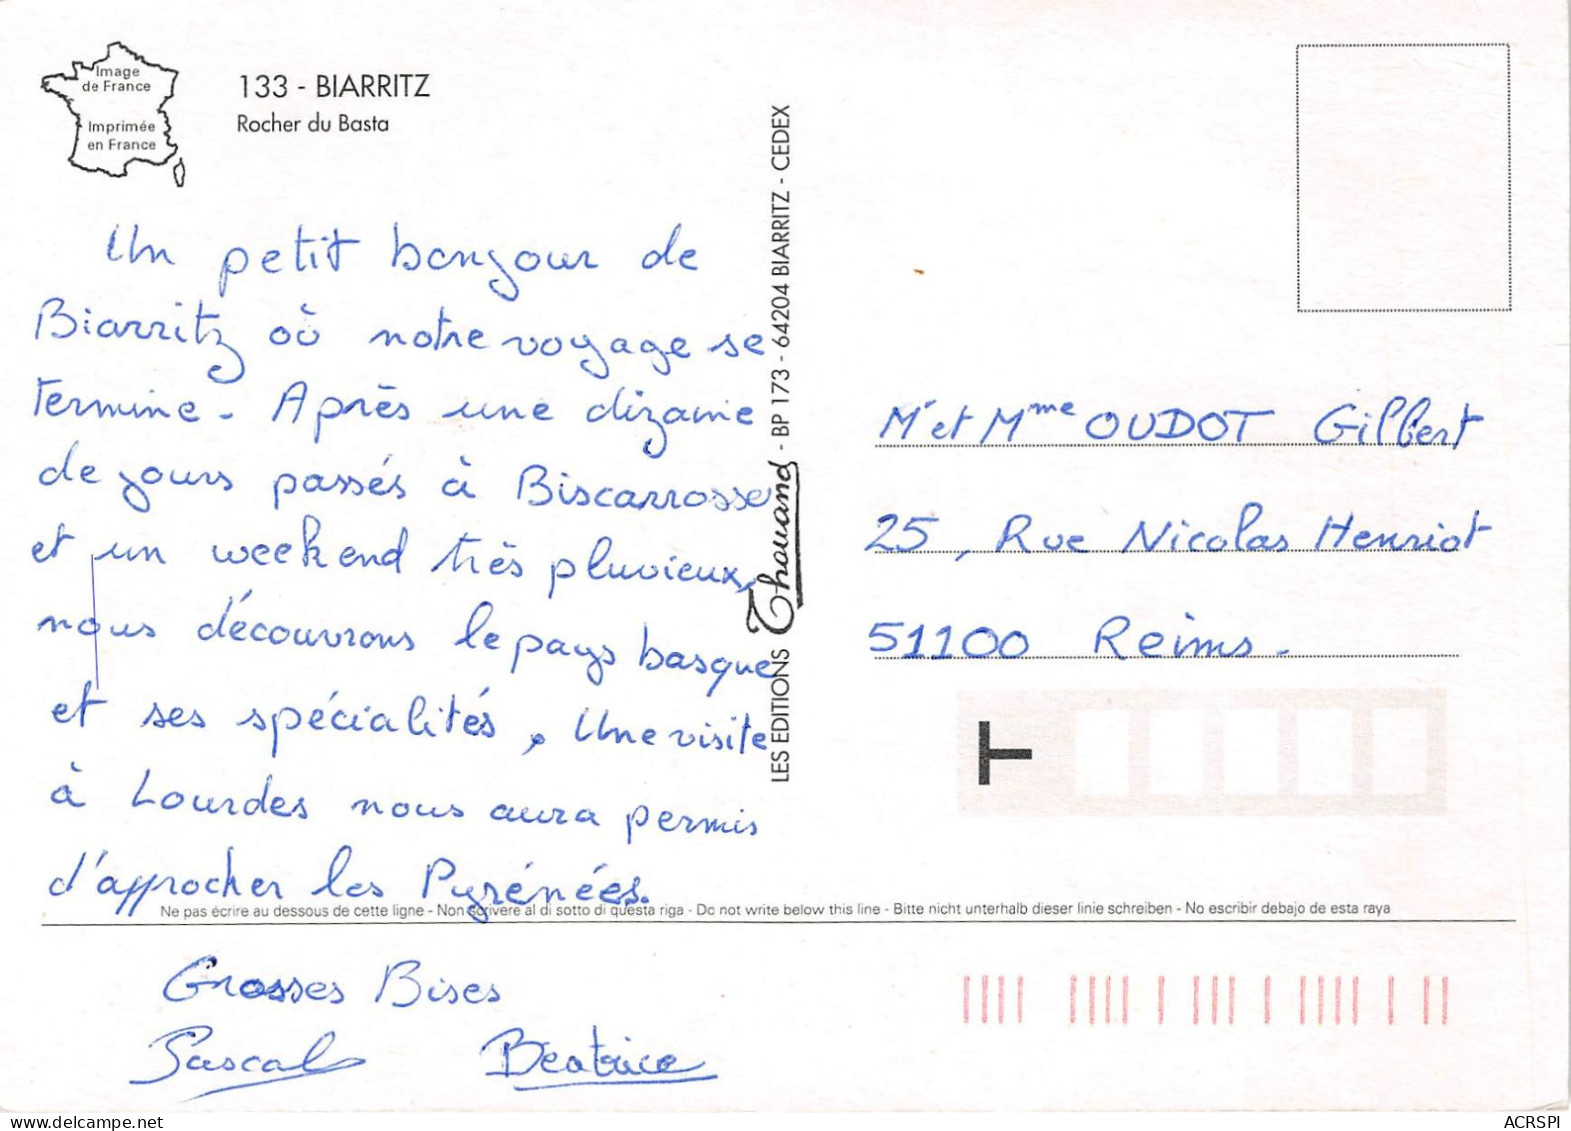 Image
de France
Imprimée
en France
133 - BIARRITZ
Rocher du Basta
Un petit bonjour de
Biarritz où notre voyage se
termine. Après une dizaine
de jours passés à Biscarrosse
et un weekend très pluvieux,
nous découvrons le pays basque
et ses spécialités. Une visite
à Lourdes nous aura permis
d'approcher les Pyrénées.
Grosses Bises
Pascal Béatrice
LES EDITIONS Thouand - BP 173 - 64204 BIARRITZ - CEDEX
Mr et Mme OUDOT Gilbert
25, Rue Nicolas Henriot
51100 Reims.
T
Ne pas écrire au dessous de cette ligne - Non scrivere al di sotto di questa riga - Do not write below this line - Bitte nicht unterhalb dieser linie schreiben - No escribir debajo de esta raya
ACRSPI